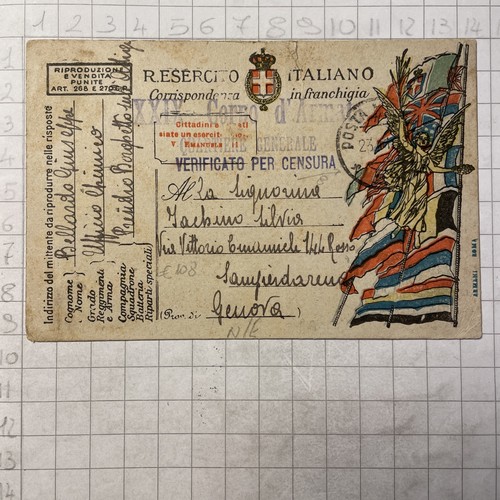 1 2 3 4 5 6 7 8 9 10 11 12 13 14
1
2
3
4
5
6
7
8
9
10
11
12
13
14
RIPRODUZIONE
E VENDITA
PUNITE
ART. 268 E 270
R. ESERCITO ITALIANO
Corrispondenza in franchigia
XXIX Corpo d'Armat
Cittadini e
siate un esercit
V. EMANUELE III
QUARTIERE GENERALE
VERIFICATO PER CENSURA
POSTA
23
Alla Signorina
Iachino Silvia
Via Vittorio Emanuele 144 Rosso
Sampierdarena
(Prov. di) Genova
€ 108
N/E
Indirizzo del mittente da riprodurre nelle risposte
Cognome e Nome Bellardo Giuseppe
Grado Ufficio Chimico
Reggimento e Arma Presidio Borghetto
Compagnia
Squadrone
Batteria
Riparti speciali
ARMANI - ROMA